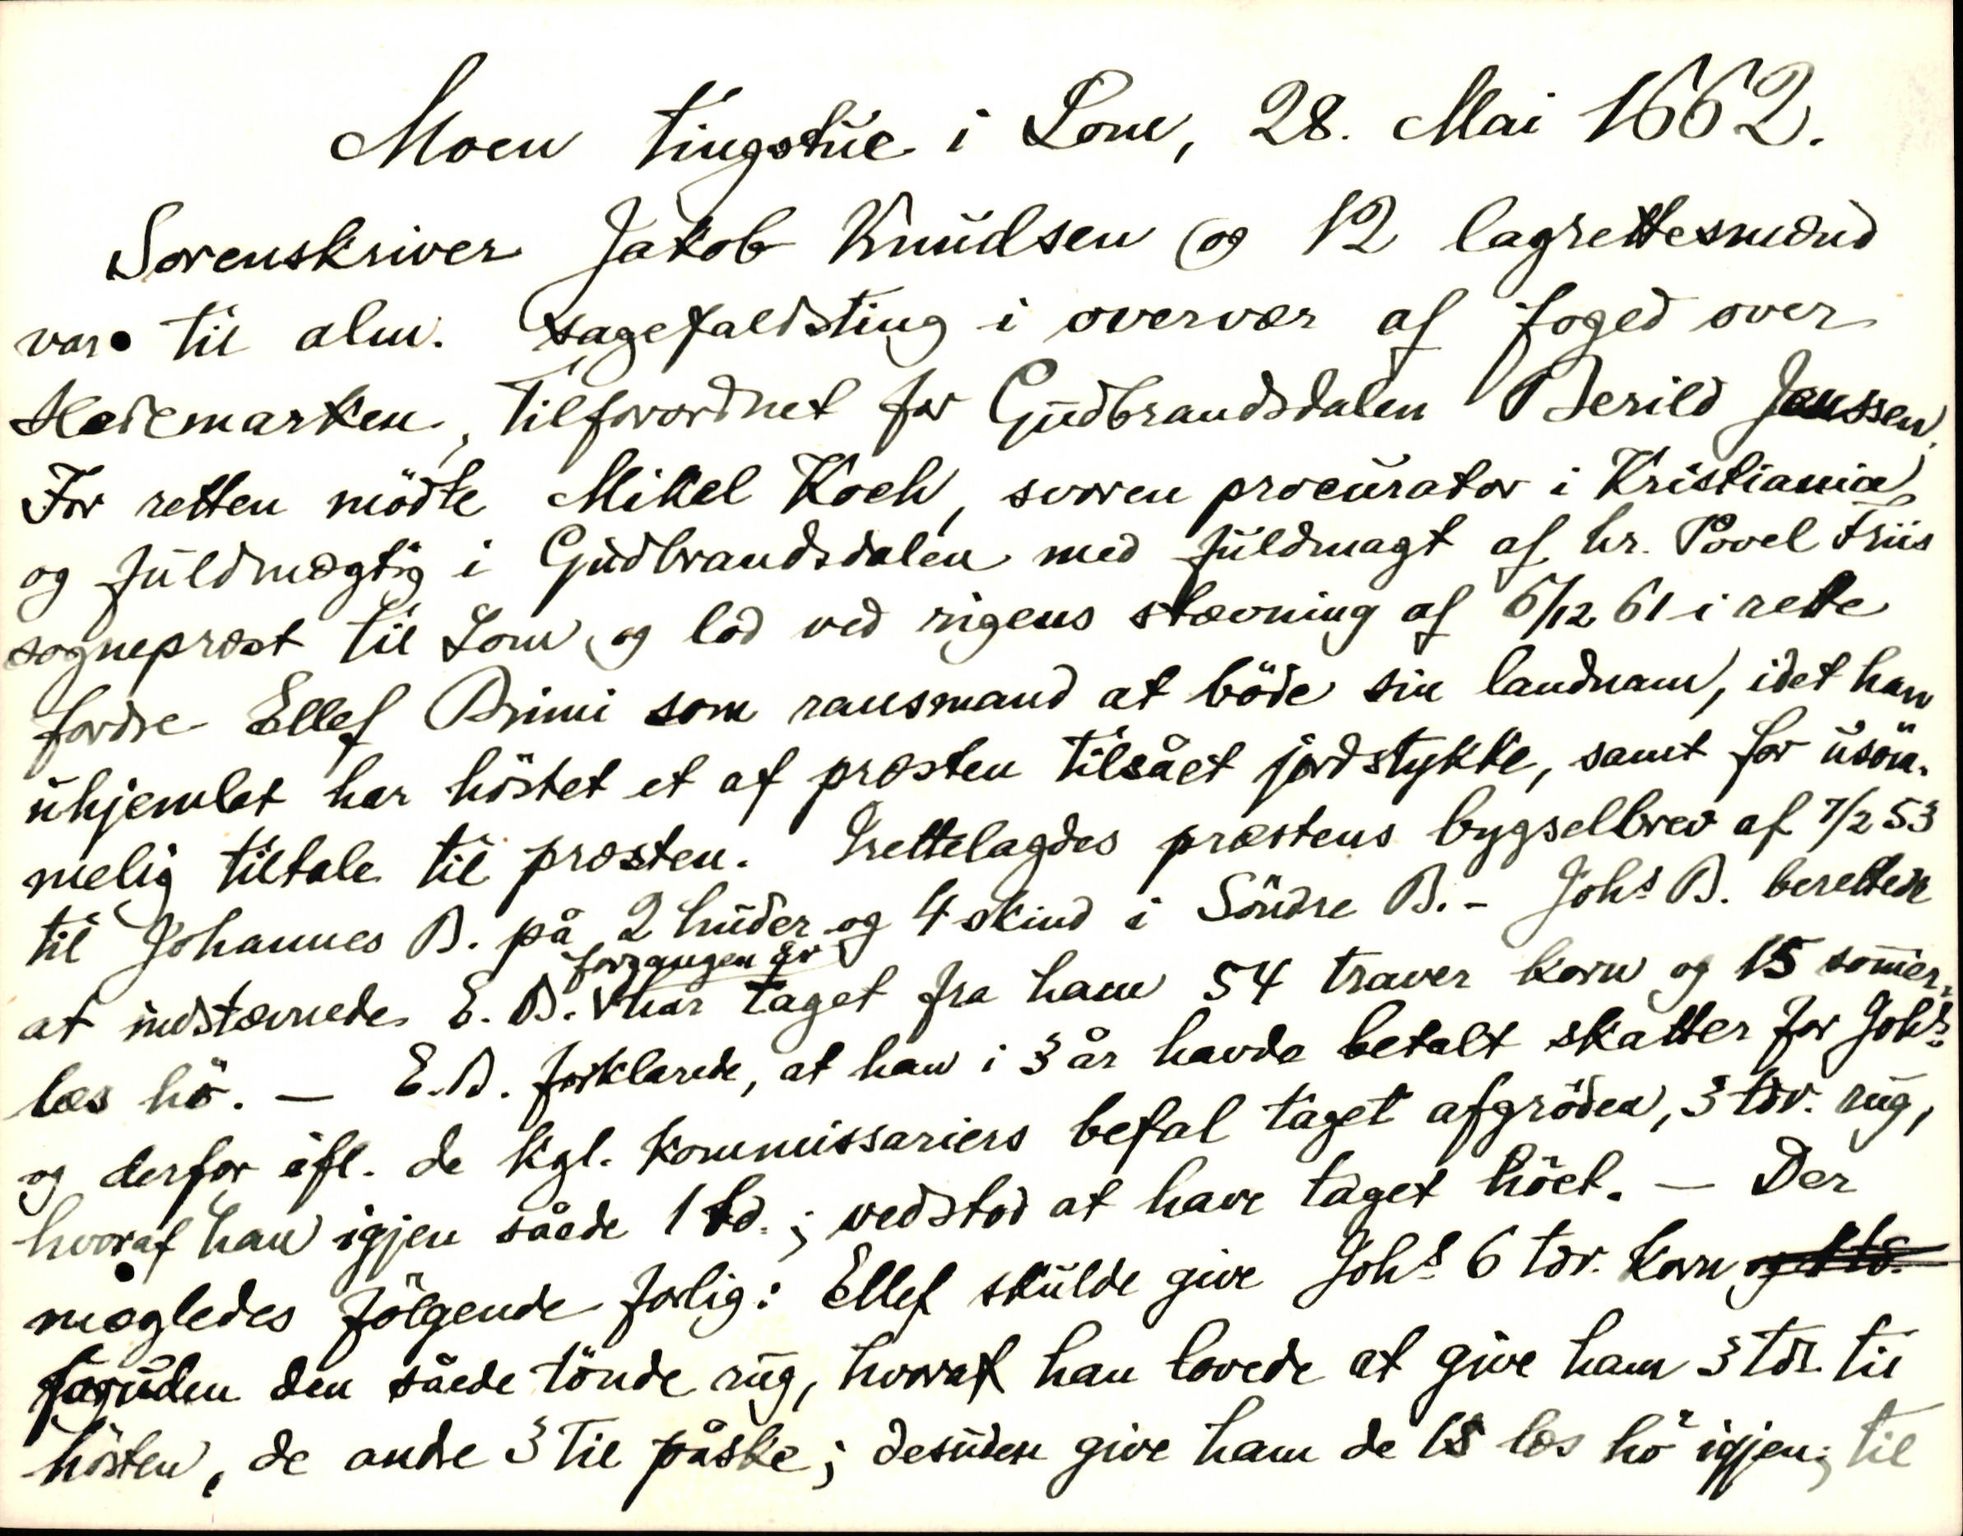 Moen tingstue i Lom, 28. Mai 1662.
Sorenskriver Jakob Knudsen og 12 lagrettesmænd
var til alm. sagefaldsting i overvær af foged over
Hedemarken, tilforordnet for Gudbrandsdalen Berild Jenssen.
For retten mödte Mikel Koch, svoren procurator i Kristiania
og fuldmægtig i Gudbrandsdalen med fuldmagt af hr. Povel Friis
sogneprest til Lom og lod ved rigens stævning af 6/12 61 i rette
fordre Ellef Brimi som ransmand at böde sin landnam, idet han
uhjemlet har höstet et af præsten tilsået jordstykke, samt for usöm-
melig tiltale til præsten. Irettelagdes præstens bygselbrev af 7/2 53
til Johannes B. på 2 huder og 4 skind i Söndre B. - Johs B. berettede
at indstævnede E. B. forgangen år har taget fra ham 54 traver korn og 15 sommer-
læs hö. — E. B. forklarede, at han i 3 år havde betalt skatter for Johs
og derfor ifl. de kgl. kommissariers befal taget afgröden, 3 tdr. rug,
hvoraf han igjen såede 1 td.; vedstod at have taget höet. — Der
mægledes fölgende forlig: Ellef skulde give Johs 6 tdr. korn og 1 td.
foruden den såede tönde rug, hvoraf han lovede at give ham 3 tdr. til
hösten, de andre 3 til påske; desuden give ham de 15 læs hö igjen; til